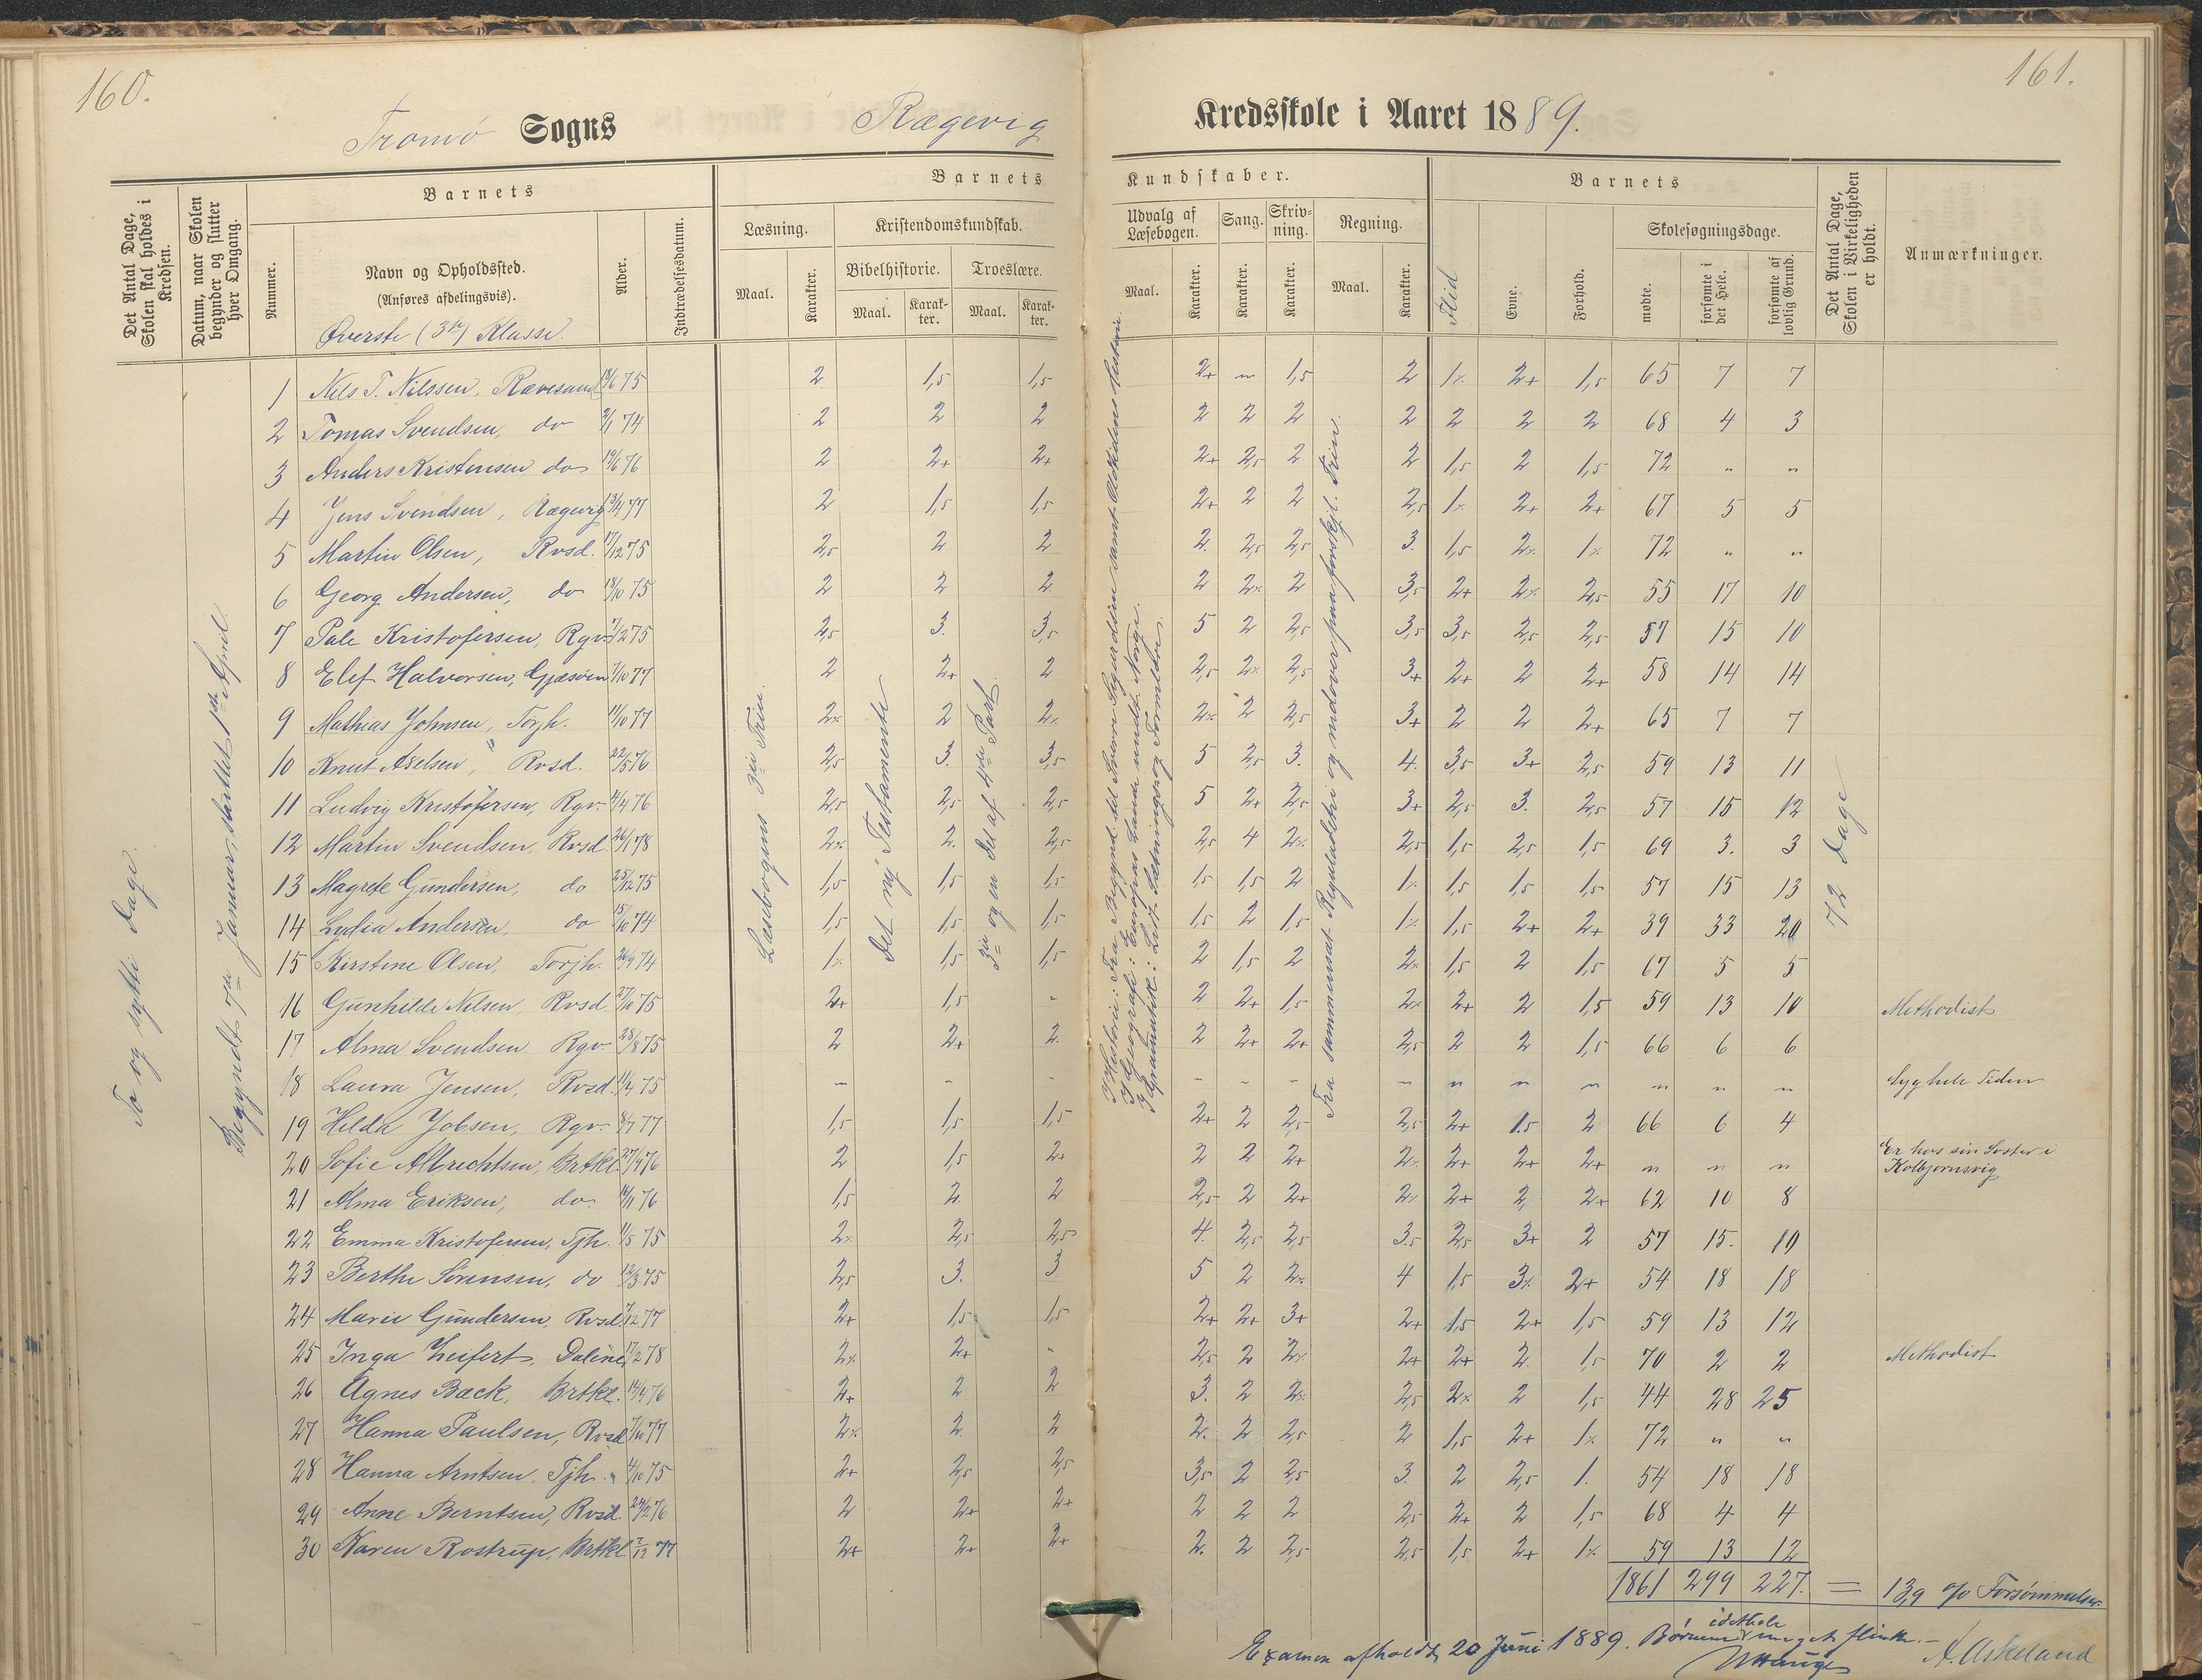 160.
161.
Tromø Sogns Rægevig Kredsskole i Aaret 1889.
Det Antal Dage, Skolen skal holdes i Kredsen.
Datum, naar Skolen begynder og slutter hver Omgang.
Barnets
Nummer.
Navn og Opholdssted.
(Anføres afdelingsvis).
Øverste (3die) Klasse.
Alder.
Indtrædelsesdatum.
Barnets Kundskaber.
Læsning.
Maal.
Karakter.
Kristendomskundskab.
Bibelhistorie.
Maal.
Karakter.
Troeslære.
Maal.
Karakter.
Udvalg af Læsebogen.
Maal.
Karakter.
Sang.
Karakter.
Skrivning.
Karakter.
Regning.
Maal.
Karakter.
Barnets
Flid
Evne.
Forhold.
Skolesøgningsdage.
mødte.
forsømte i det Hele.
forsømte af lovlig Grund.
Det Antal Dage, Skolen i Virkeligheden er holdt.
Anmærkninger.
To og sytti Dage.
Begyndt 7de Januar, sluttet 1ste April.
Læsebogens 3die Trin.
Det ny Testamente
3die og en Del af 4de Part.
I Historie: Fra Begyndelsen
I Geografi: Europas Lande undt. Norge.
I Grammatik: Lidt Sætnings og Formlære.
Fra sammensat Reguladetri og nedover paa forskjl. Trin.
72 Dage
1 Nils T. Nilssen, Rævesand 18/6 75 2 1,5 1,5 2+ " 1,5 2 1% 2+ 1,5 65 7 7
2 Tomas Svendsen, do 2/1 74 2 2 2 2 2 2 2 2 2 2 68 4 3
3 Anders Kristensen do 19/6 76 2 2+ 2+ 2+ 2,5 2 2 1,5 2 1,5 72 " "
4 Jens Svendsen, Rægevig 13/4 77 2 1,5 1,5 2+ 2 2 2,5 1% 2+ 2+ 67 5 5
5 Martin Olsen, Rvsd. 17/12 75 2,5 2 2 2. 2,5 2,5 3. 1,5 2% 1% 72 " "
6 Georg Andersen, do 18/10 75 2 2 2 2 2% 2 3,5 2+ 2% 2,5 55 17 10
7 Pale Kristofersen, Rgv. 7/2 75 2,5 3. 3,5 5 2 2,5 3,5 3,5 2,5 2,5 57 15 10
8 Elef Halvorsen, Gjæsøen 7/10 77 2 2+ 2 2,5 2% 2,5 3+ 2+ 2 2+ 58 14 14
9 Mathias Johnsen, Torjh. 11/10 77 2% 2 2% 2% 2 2,5 3+ 2 2 2+ 65 7 7
10 Knut Axelsen, Rvsd. 22/5 76 2,5 3. 3,5 5 2,5 3. 4. 3,5 3+ 2,5 59 13 11
11 Ludvig Kristofersen, Rgv. 4/4 76 2,5 2,5 2,5 5 2+ 2,5 3+ 2,5 3. 2,5 57 15 12
12 Martin Svendsen, Rvsd. 26/1 78 2% 2. 2,5 2,5 4 2% 2,5 1,5 2,5 1,5 69 3. 3
13 Magrete Gundersen, do 25/12 75 1,5 1,5 1,5 1,5 1,5 2 1% 1,5 1,5 1,5 57 15 13
14 Lydia Andersen, do 15/10 74 1,5 1,5 1,5 1,5 2 1,5 1% 1,5 2+ 2+ 39 33 20
15 Kirstine Olsen, Torjh. 26/9 74 1% 1,5 1,5 2 1,5 2 2% 1,5 2 1,5 67 5 5
16 Gunhilde Nilsen, Rvsd. 27/10 75 2+ 1,5 - 2 2+ 1,5 2% 2+ 2 1,5 59 13 10 Methodist
17 Alma Svendsen Rgv. 28/8 75 2 2+ 2. 2 2+ 2+ 2,5 2 2 1,5 66 6 6
18 Laura Jensen, Rvsd. 11/4 75 " " " " " " " " " " " " " Syg hele Tiden
19 Hilda Jobsen, Rgv. 8/7 77 1,5 1,5 1,5 2+ 2 2,5 2,5 2+ 1.5 2 66 6 4
20 Sofie Albrechtsen, Brtkl. 27/9 76 2 1,5 2+ 2 2 2+ 2% 2+ 2+ 2+ " " " Er hos sin Søster i
Kolbjørnsvig
21 Alma Eriksen, do. 14/11 76 1,5 2 2 2,5 2 2+ 2% 2+ 2, 2+ 62 10 8
22 Emma Kristofersen, Tjh. 11/5 75 2% 2,5 2,5 4. 2,5 2,5 3.5 2,5 3+ 2 57 15. 10
23 Berthe Sørensen, do 12/3 75 2,5 3. 3 5 2 2% 4 1,5 3% 2+ 54 18 18
24 Marie Gundersen, Rvsd. 7/12 77 2+ 1,5 1,5 2+ 2+ 3+ 2+ 1,5 2+ 1,5 59 13 12
25 Inga Leifert, Dalene, 17/2 78 2% 2+ " 2,5 2 2% 2+ 2+ 2. 1,5 70 2 2 Methodist
26 Agnes Bæck, Brtkl. 14/4 76 2+ 2 2 3. 2 2% 2,5 2% 2 1,5 44 28 25
27 Hanna Paulsen, Rvsd 7/10 77 2% 2. 2 2. 2 2,5 2 1,5 2+ 1% 72 " "
28 Hanna Arntsen, Tjh. 4/10 75 2+ 2,5 2,5 3,5 2 2,5 3. 2 2,5 1. 54 18 18
29 Anne Berntsen, Rvsd. 24/2 76 2 2+ 2+ 2 2 2 2,5 2+ 2 1,5 68 4 4
30 Karen Rostrup, Brtkl. 7/12 77 2+ 2+ 2+ 2. 2 2,5 2,5 1,5 2+ 1% 59 13 12
1861 299 227. = 13,9 o/o Forsømmelser.
Examen afholdt 20 Juni 1889. Børnene idethele meget flinke. -
A. Askeland